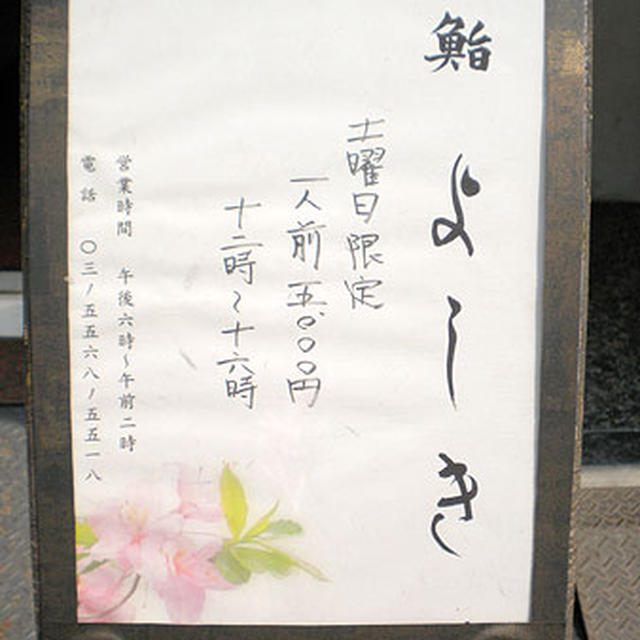 鮨 よしき
土曜日限定
一人前 五,〇〇〇円
十二時～十六時
営業時間 午後六時～午前二時
電話 〇三/五五六八/五五一八